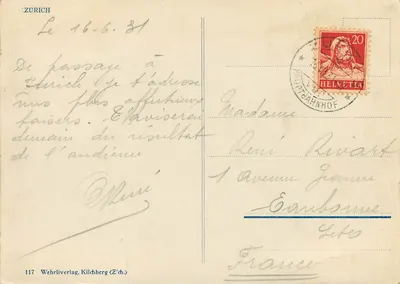 ZÜRICH
Le 16.6.31
De passage à
Zurich je t'adresse
mes plus affectueux
baisers. T'aviserai
demain du résultat
de l'audience
René
117 Wehrliverlag, Kilchberg (Z'ch.)
20
HELVETIA
HAUPTBAHNHOF
Madame
René Rivart
1 Avenue
Eaubonne
France